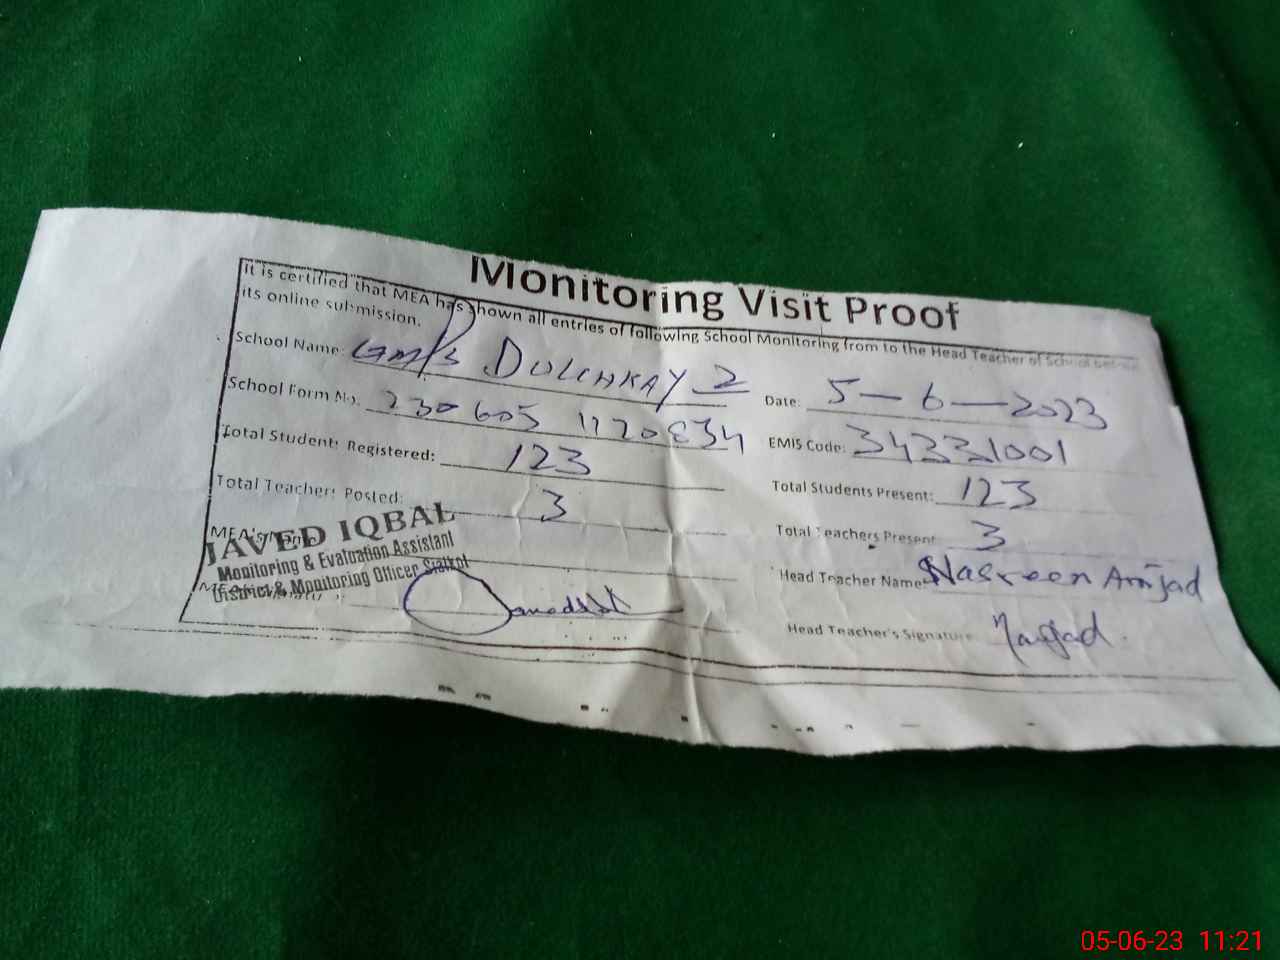 Monitoring Visit Proof
It is certified that MEA has shown all entries of following School Monitoring from to the Head Teacher of School before
its online submission.
School Name: GMPS DULCHKAY 2
Date: 5-6-2023
School Form No. 230605 1120834
EMIS Code: 34331001
Total Students Registered: 123
Total Students Present: 123
Total Teachers Posted: 3
Total Teachers Present 3
MEA's Name
JAVED IQBAL
Monitoring & Evaluation Assistant
District & Monitoring Officer Sialkot
Head Teacher Name Nasreen Amjad
Head Teacher's Signature Namjad
05-06-23 11:21